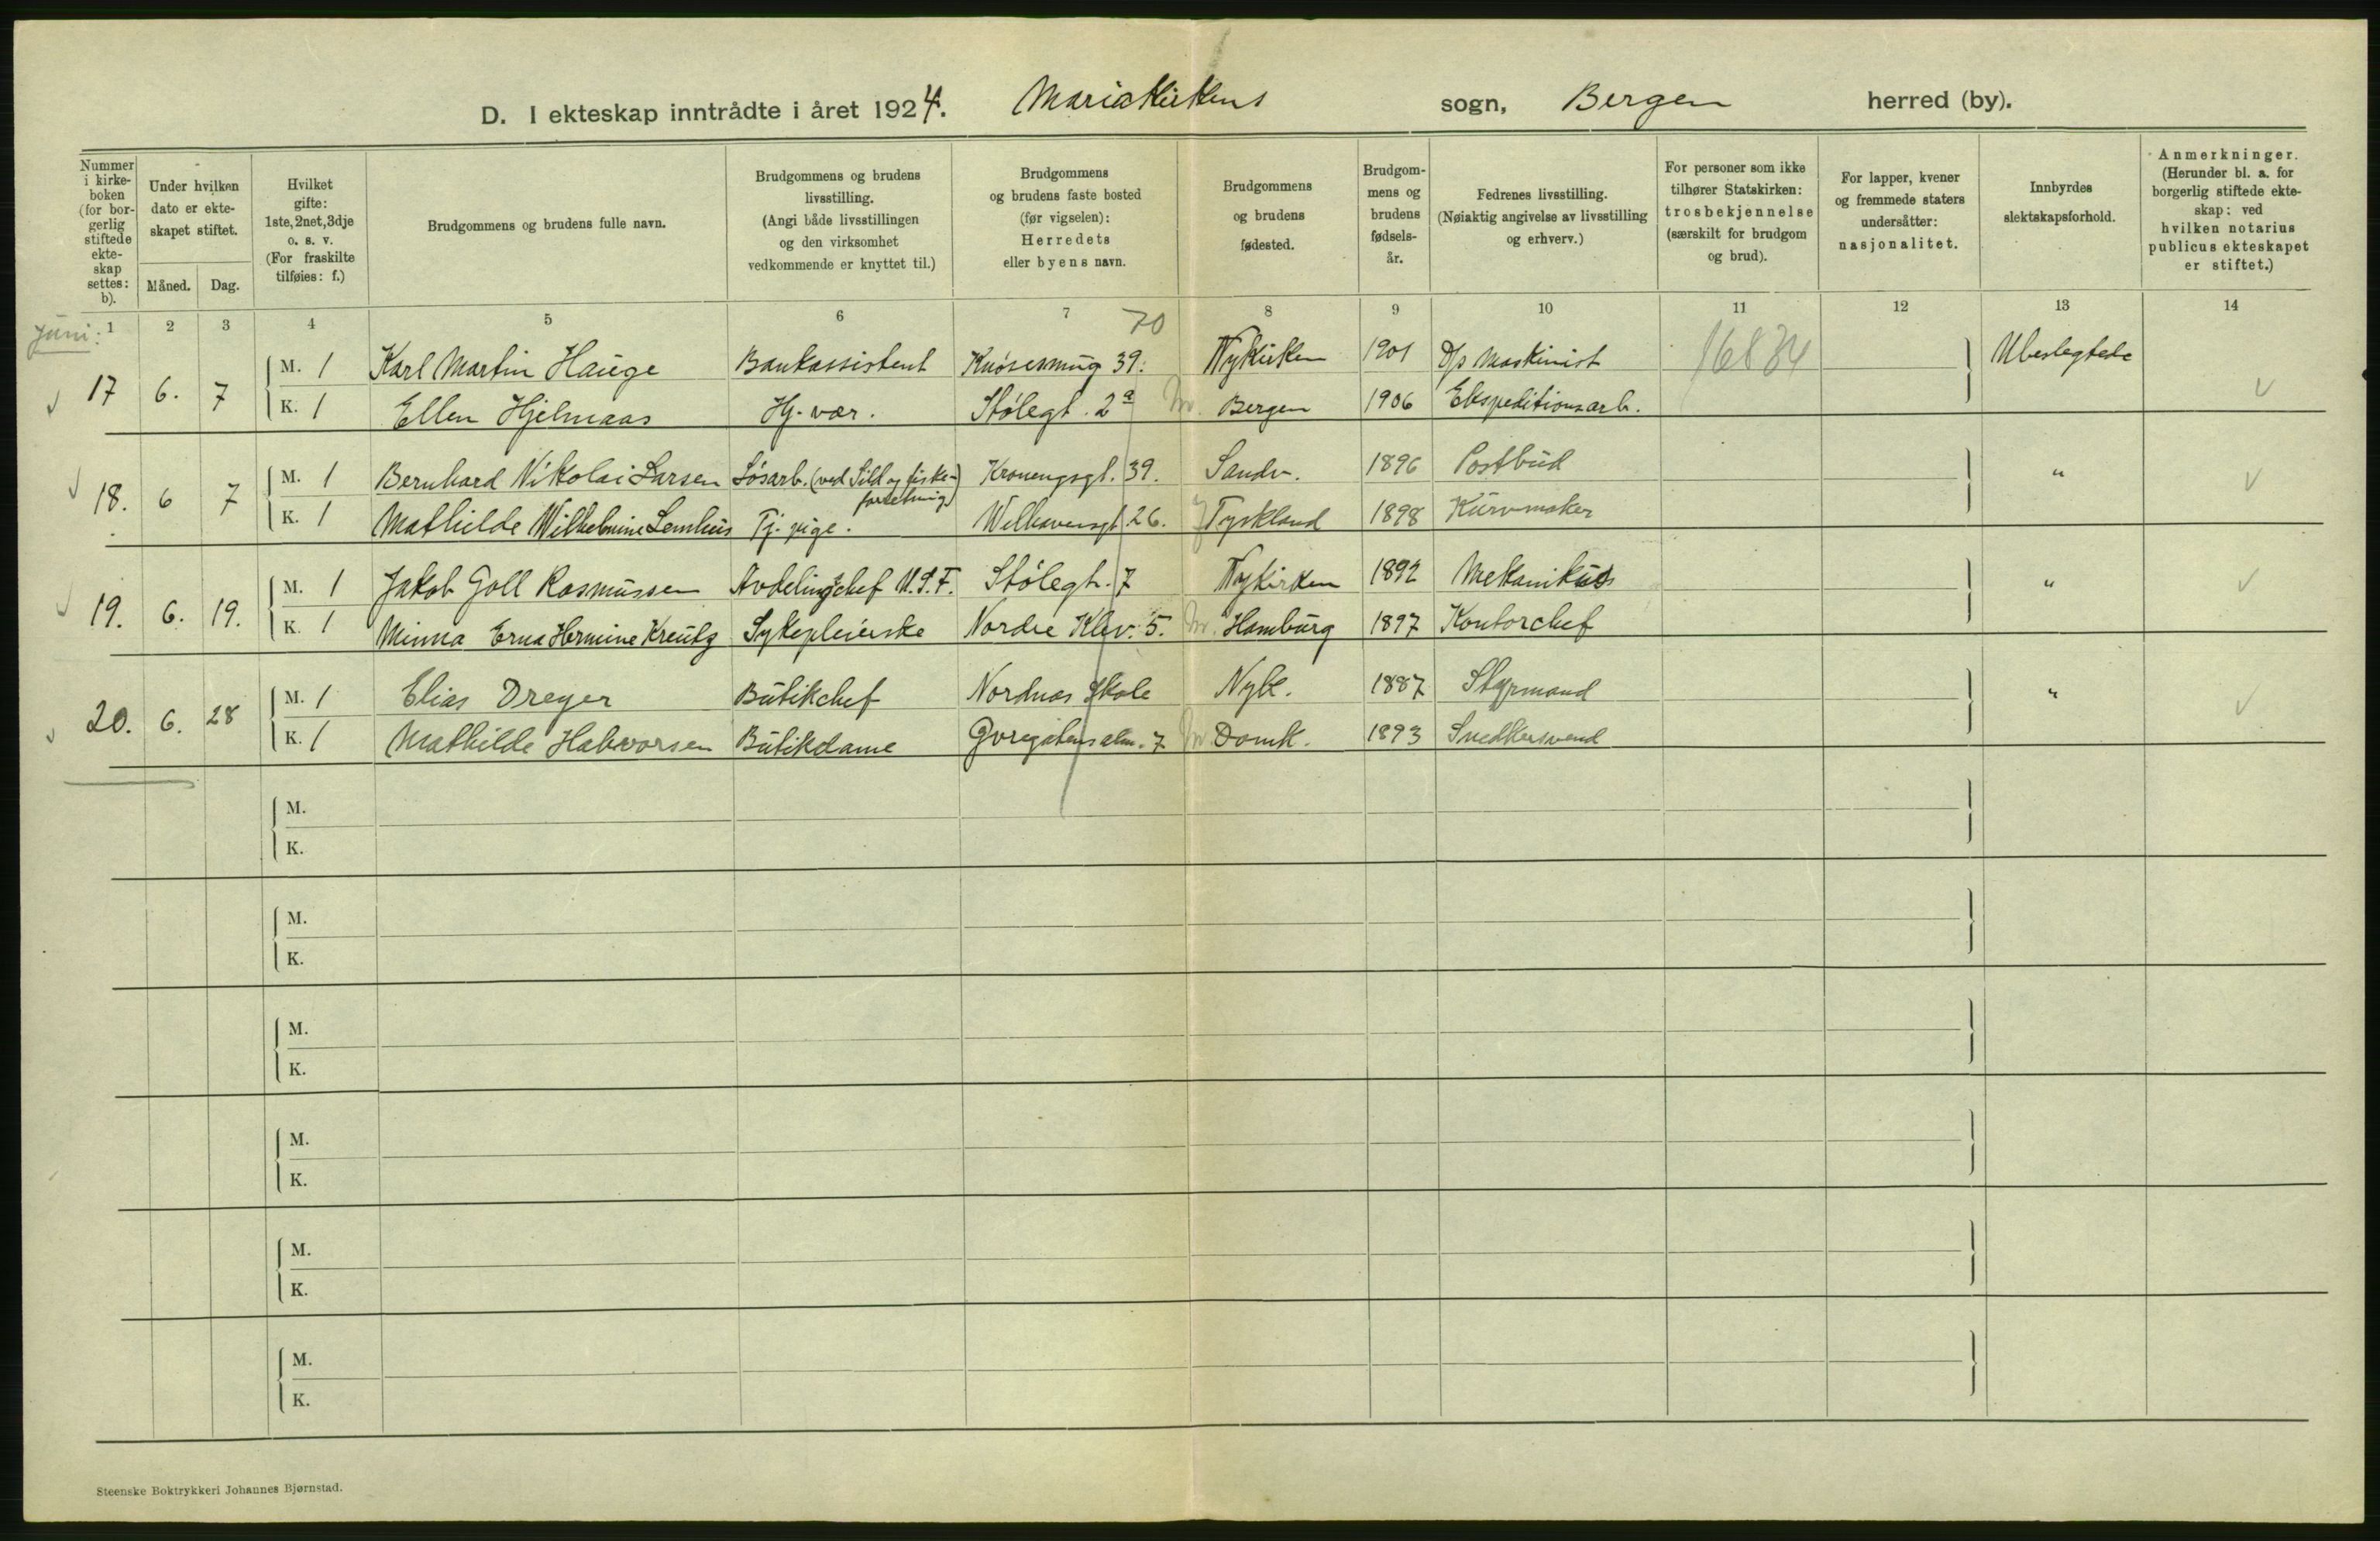 D. I ekteskap inntrådte i året 1924. Mariakirkens sogn, Bergen herred (by).
Nummer i kirke-boken (for bor-gerlig stiftede ekte-skap settes: b).
Under hvilken dato er ekte-skapet stiftet.
Måned. Dag.
Hvilket gifte: 1ste, 2net, 3dje o. s. v. (For fraskilte tilføies: f.)
Brudgommens og brudens fulle navn.
Brudgommens og brudens livsstilling. (Angi både livsstillingen og den virksomhet vedkommende er knyttet til.)
Brudgommens og brudens faste bosted (før vigselen): Herredets eller byens navn.
Brudgommens og brudens fødested.
Brudgom-mens og brudens fødsels-år.
Fedrenes livsstilling. (Nøiaktig angivelse av livsstilling og erhverv.)
For personer som ikke tilhører Statskirken: trosbekjennelse (særskilt for brudgom og brud).
For lapper, kvener og fremmede staters undersåtter: nasjonalitet.
Innbyrdes slektskapsforhold.
Anmerkninger. (Herunder bl. a. for borgerlig stiftede ekte-skap: ved hvilken notarius publicus ekteskapet er stiftet.)
1 2 3 4 5 6 7 8 9 10 11 12 13 14
Juni: 70 16834
17 6. 7 M. 1 Karl Martin Hauge Bankassistent Knøsesmug 39. Nykirken 1901 D/s Maskinist Ubeslegtede
K. 1 Ellen Hjelmaas Hj. vær. Stølegt. 2a Bergen 1906 Ekspeditionsarb.
18. 6 7 M. 1 Bernhard Nikolai Larsen Løsarb. (ved Sild og fiske-forretning) Kronengsgt. 39. Sandv. 1896 Postbud "
K. 1 Mathilde Wilhelmine Lemhuis Tj. pige. Welhavensgt 26. Tyskland 1898 Kurvmaker
19. 6. 19. M. 1 Jakob Goll Rasmussen Avdelingschef U.S.F. Stølegt. 7 Nykirken 1892 Mekanikus "
K. 1 Minna Erna Hermine Kreutz Sykepleierske Nordre Klev. 5. Hamburg 1897 Kontorchef
20. 6. 28 M. 1 Elias Dreyer Butikchef Nordnes Skole Nyk. 1887 Styrmand "
K. 1 Mathilde Halvorsen Butikdame Øvregatens alm. 7 Domk. 1893 Snedkersvend
M.
K.
M.
K.
M.
K.
M.
K.
M.
K.
M.
K.
Steenske Boktrykkeri Johannes Bjørnstad.